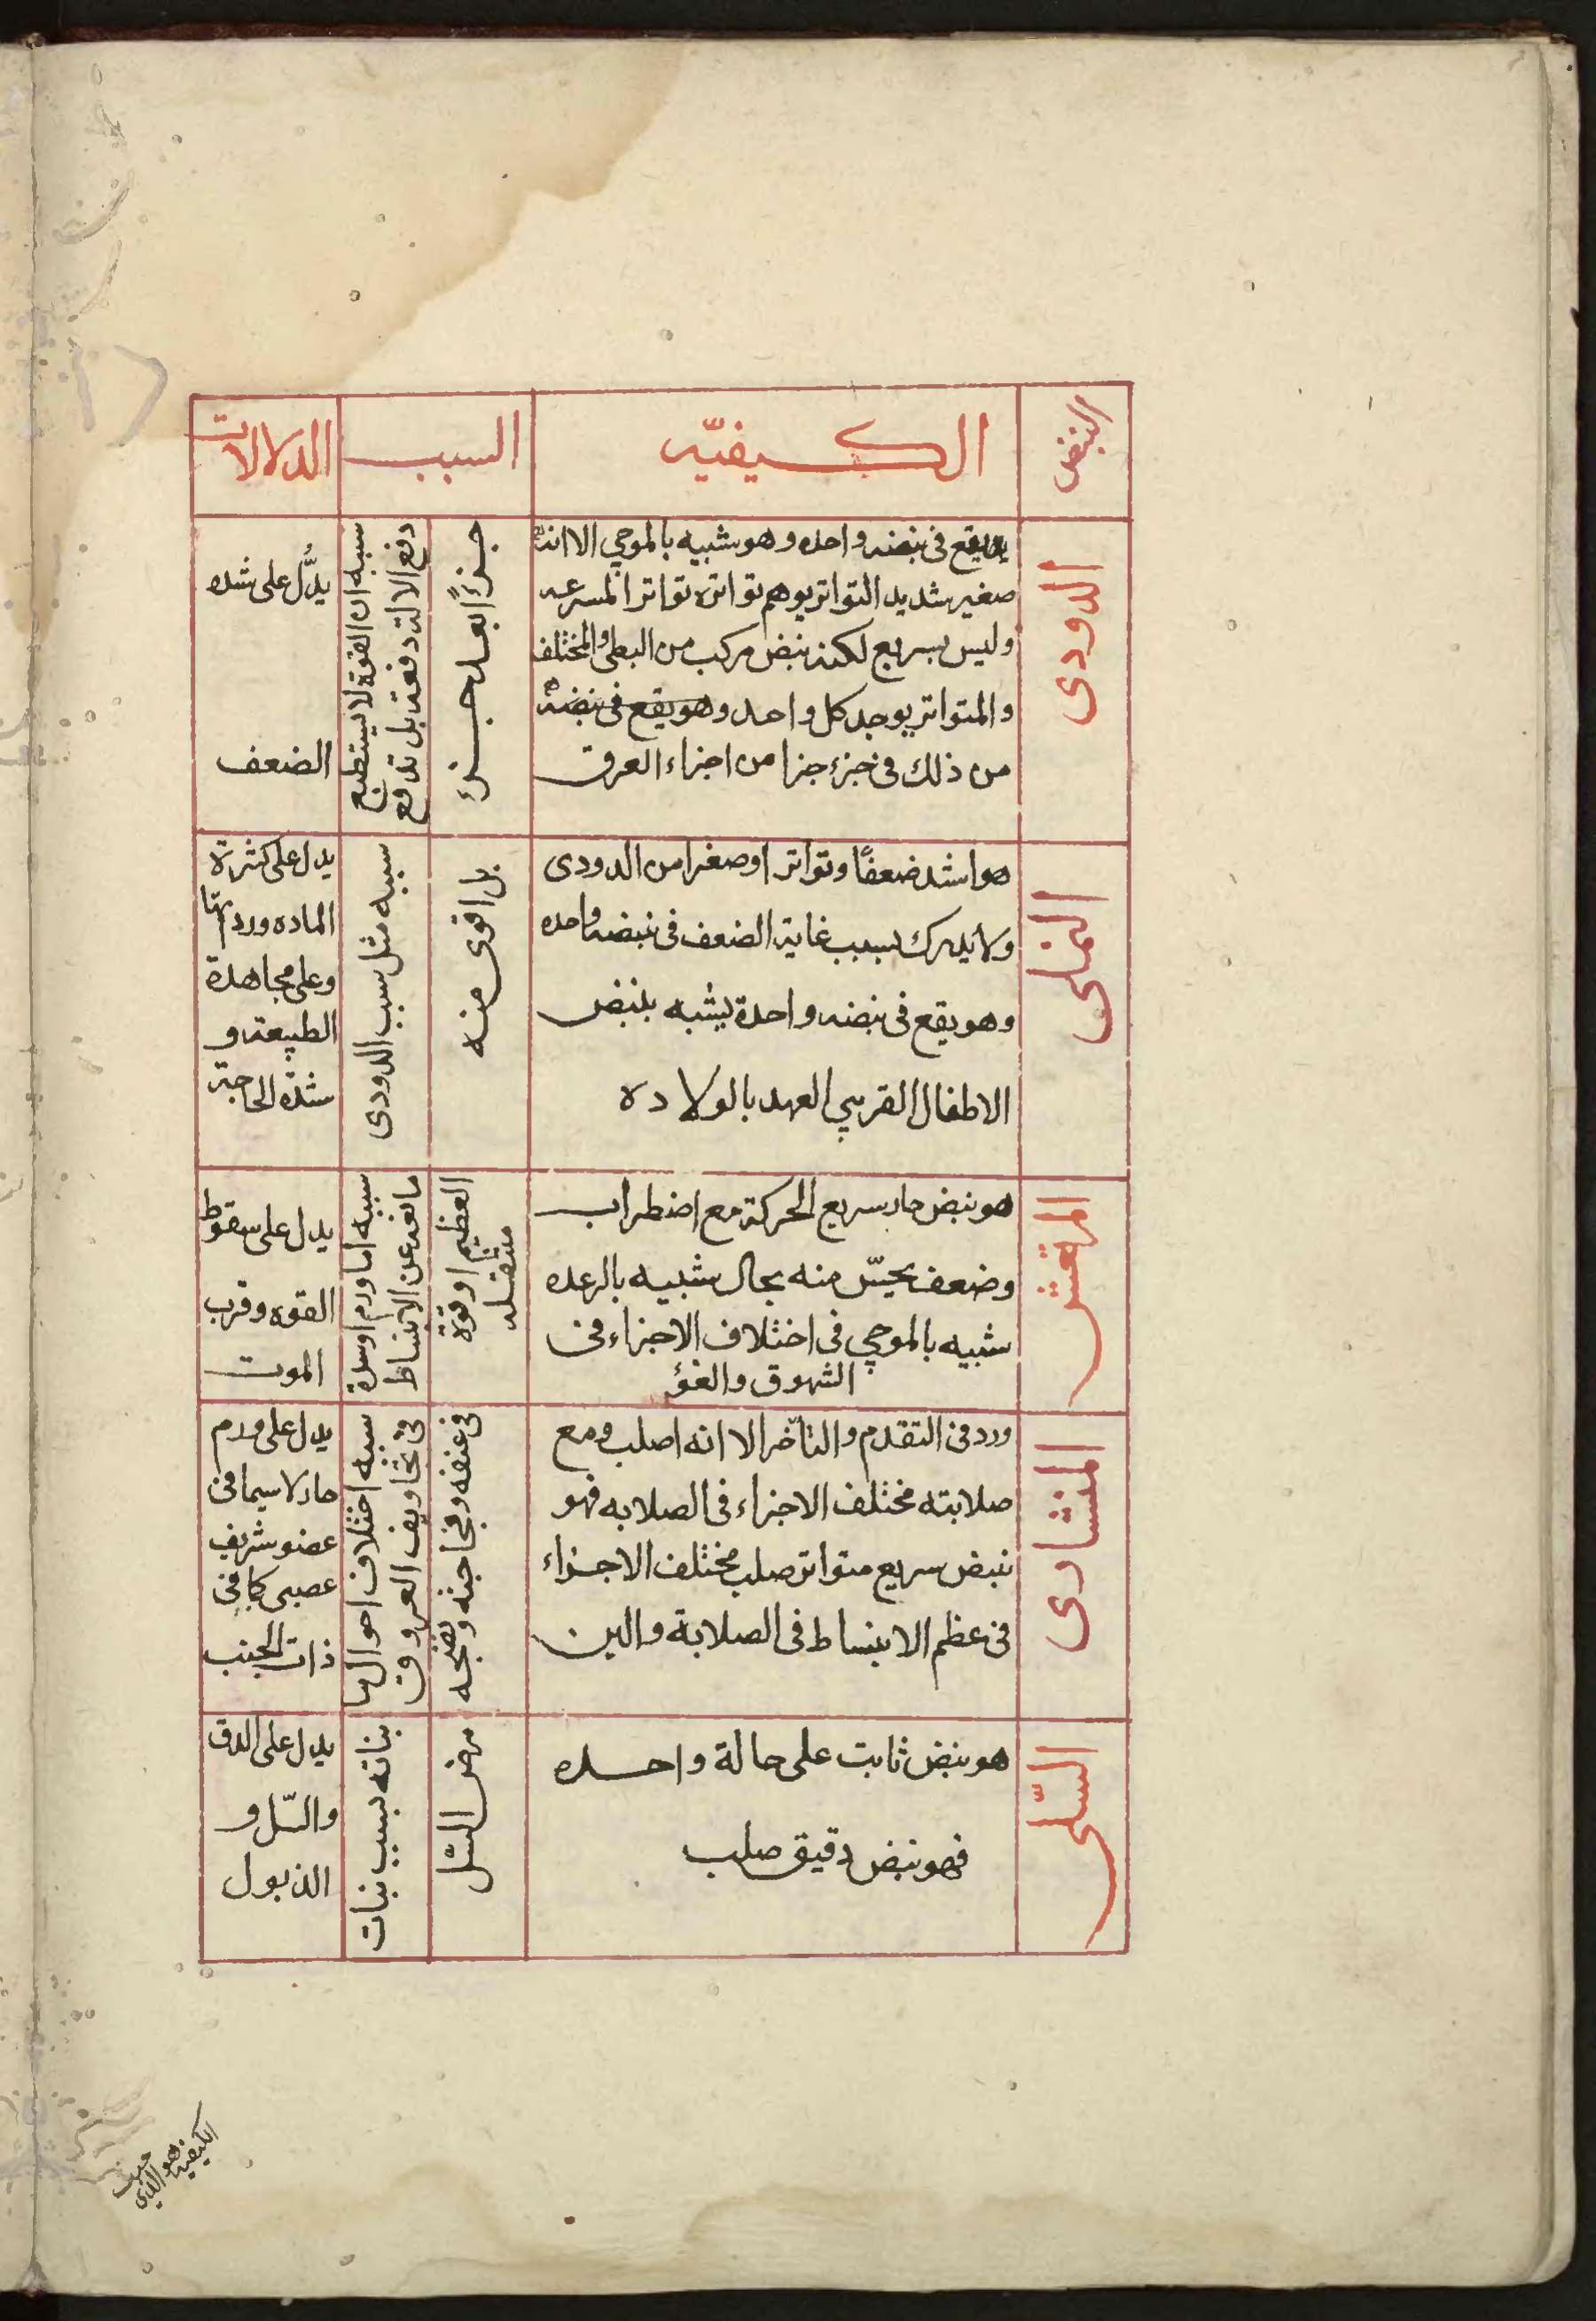 النبض
الكيفيّه
السبب
الدلالات
الدودى
يقع فى نبضه واحده وهو شبيه بالموجي الا انه
صغير شديد التواتر يوهم تواتره تواتر المسرعه
وليس بسريع لكنه نبض مركب من البطى والمختلف
والمتواتر يوجد كل واحد وهو يقع فى نبضة
من ذلك فى جزء جزا من اجزاء العرق
سببه ان القوة لا تستطيع
دفع الالة دفعة بل تدفع
جزءًا بعد جزء
يدُّل على شده
الضعف
النملى
هو اشد ضعفًا وتواترا وصغرا من الدودى
ولا يدرك بسبب غاية الضعف فى نبضه واحده
وهو يقع فى نبضه واحدة يشبه بنبض
الاطفال القريبي العهد بالولاده
سببه مثل سبب الدودى
بل اقوى منه
يدل على كثرة
الماده ورداتها
وعلى مجاهدة
الطبيعة و
شدّة الحاجة
المرتعش
هو نبض حار سريع الحركة مع اضطراب
وضعف يحسّ منه بحال شبيه بالرعده
شبيه بالموجي فى اختلاف الاجزاء فى
الشهوق والغؤ
سببه اما ورم او سدة
مانعه عن الانبساط
العظيم او قوة
مثقله
يدل على سقوط
القوه وقرب
الموت
المنشارى
ورد فى التقدم والتأخر الا انه اصلب ومع
صلابته مختلف الاجزاء فى الصلابه فهو
نبض سريع متواتر صلب مختلف الاجزاء
فى عظم الانبساط فى الصلابة والين
سببه اختلاف احوالها
فى تجاويف العروق
فى عنفه وفجاجته ونضجه
يدل على ورم
حار لا سيما فى
عضو شريف
عصبى كما فى
ذات الجنب
السّلى
هو نبض ثابت على حالة واحده
فهو نبض دقيق صلب
بناته بسبب بنات
مرض السّل
يدل على الدق
والسّل و
الذبول
الكيفيه
هو الذي